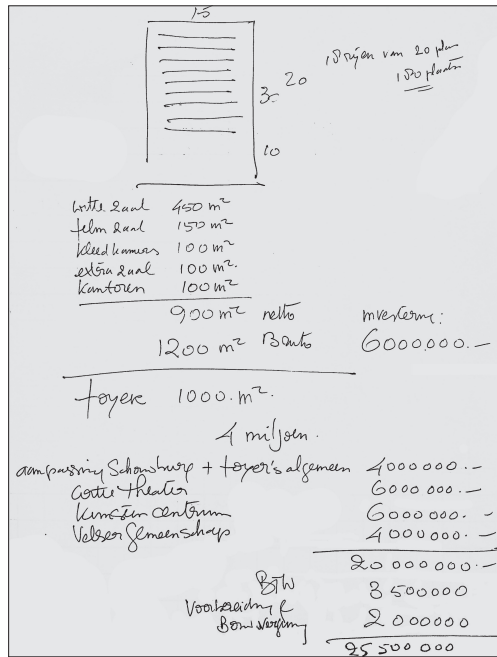 15
18 rijen van 20
20
30
10
witte zaal 450 m²
film zaal 150 m²
kleedkamers 100 m²
extra zaal 100 m².
Kantoren 100 m²
900 m² netto investering:
1200 m² Bruto 6000.000.-
foyer 1000.m².
4 miljoen.
aanpassing Schouwburg + foyer's algemeen 4000000.-
Witte theater 6000000.-
Kunsten centrum 6000000.-
Velser Gemeenschap 4000000.-
20000000.-
BTW 3500000
Voorbereiding &
Bouw 2000000
25500000